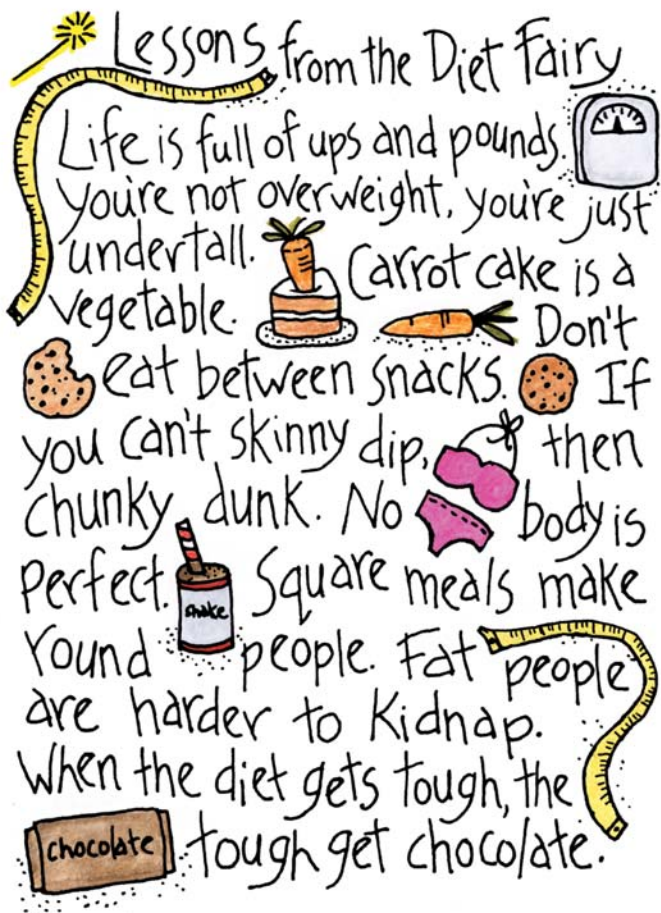 Lessons from the Diet Fairy
Life is full of ups and pounds.
you're not overweight, you're just
undertall. Carrot cake is a
vegetable. Don't
eat between snacks. If
you can't skinny dip, then
chunky dunk. No body is
perfect. Square meals make
shake
round people. Fat people
are harder to kidnap.
When the diet gets tough, the
chocolate tough get chocolate.